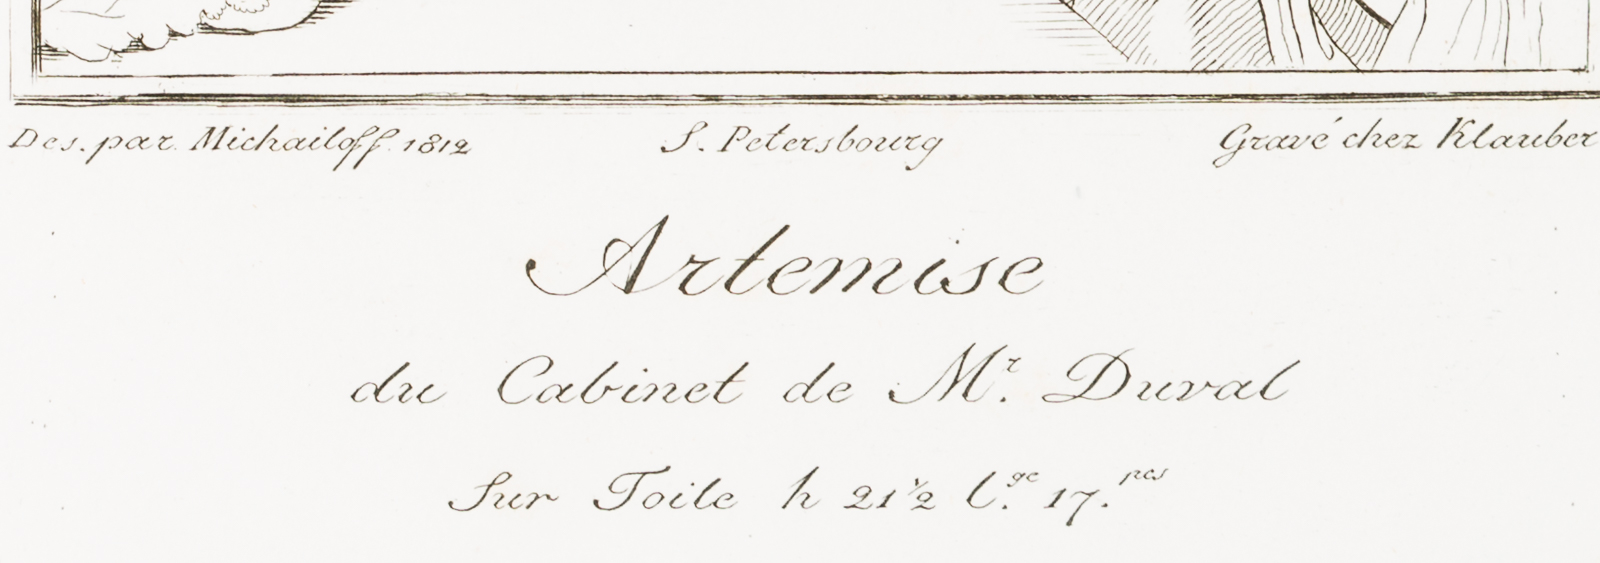 Des. par Michailoff 1812 S. Petersbourg Gravé chez Klauber
Artemise
du Cabinet de Mr. Duval
Sur Toile h 21½ l.ge 17. pces